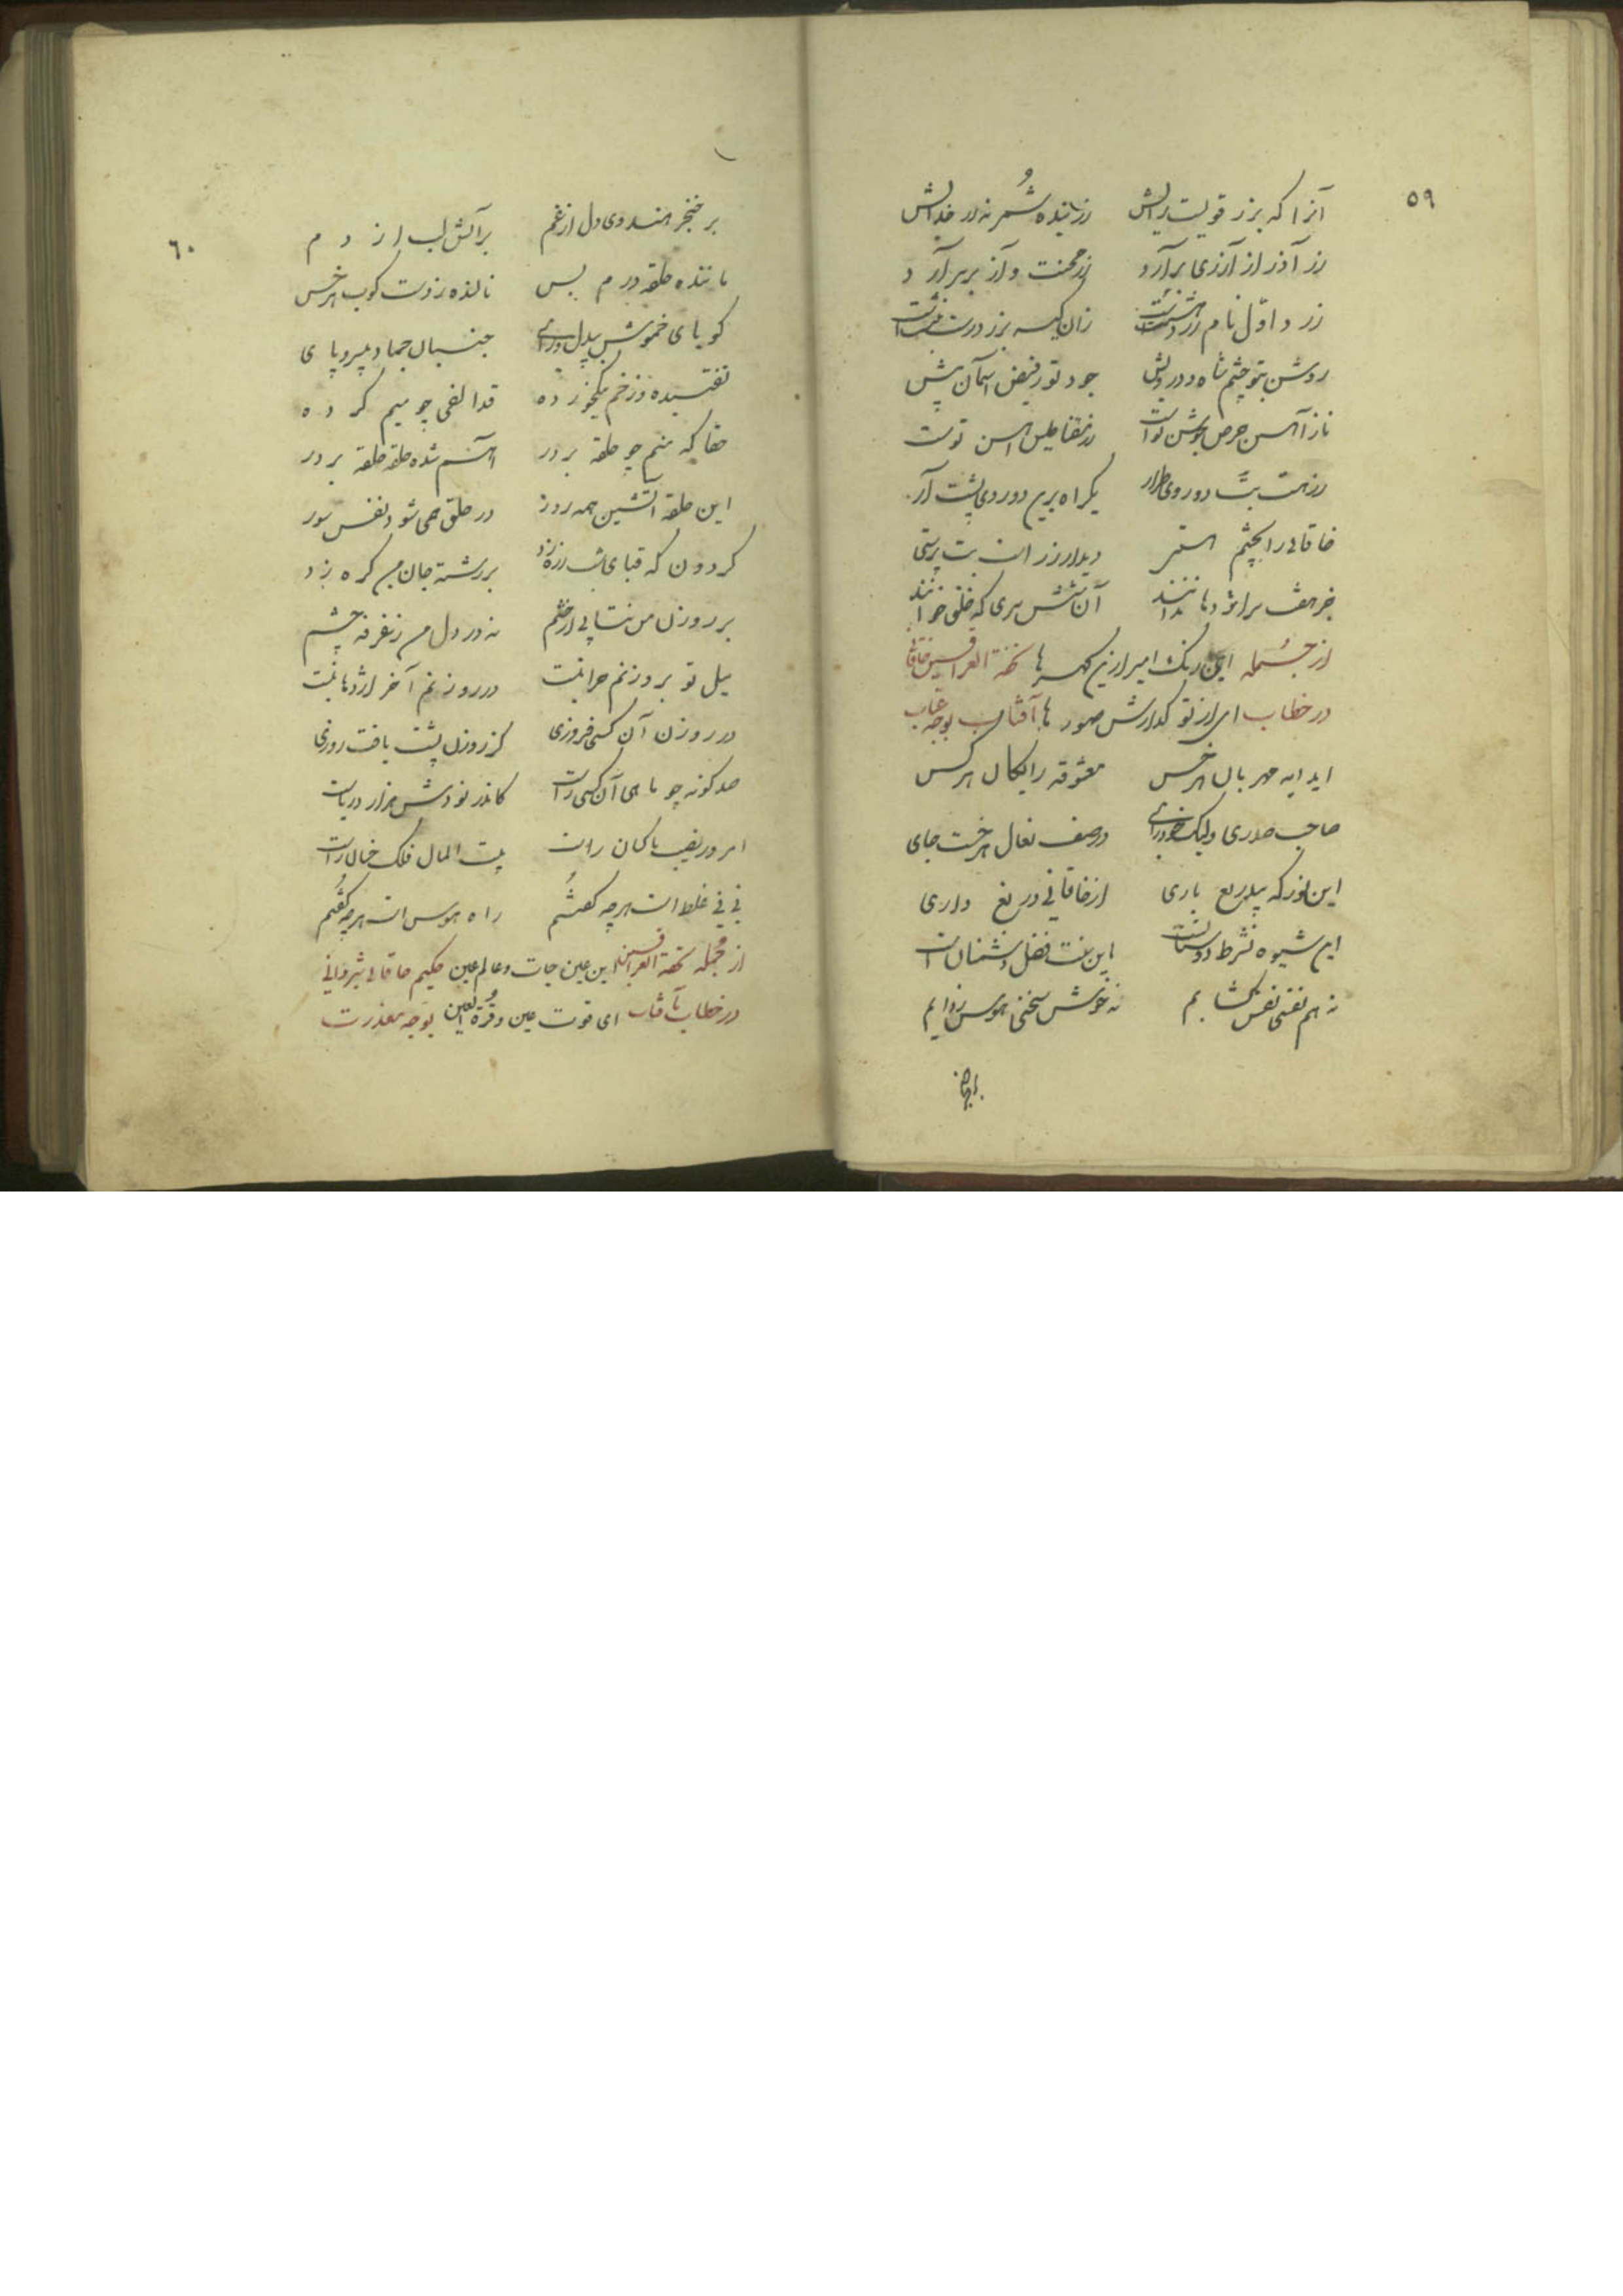 ٥٩
آنرا که بزر قویست رایش
زر بنده شمر نه زر خدایش
زر آذر از آرزی برآرد
زر محنت و آز بر سر آرد
زر د اول نام زردهشت است
روشن بتو چشم شاه و درویش
جود تو ز فیض آسمان پیش
ناز آهن حرص جوشن تو است
زر مغناطیس آهن تو است
زر هست بت دو روی طرار
یکراه برین دو روی پشت آر
خاقانی را بچشم
دیدار زر است بت پرستی
جز هفت سر اژدها ندانند
آن شش سری که خلق خوانند
از جمله این رنک امیز ارژنک تحفة العراقین خاقانی
در خطاب ای از تو کدارش صور ها آفتاب بوجه عتاب
ای دایه مهربان هر خس
معشوقه رایکان هر کس
صاحب صدری ولیک خودرای
در صف نعال هر خست جای
این نور که بیدریغ باری
از خاقانی دریغ داری
این شیوه نه شرط دوستانست
این سنت فضل دشمنان است
نه هم نفسی نفس کشایم
نه خوش سخنی هوس زدایم
٦٠
بر خنجر هندوی دل از غم
بر آتش لب از دم
ماننده حلقه درم پس
نالنده ز دست کوب هر خس
کویای خموش بیدل و رای
جنبان جماد بیسر و پای
تفتسیده و زخم نیک خورده
قد الفی چو میم کرده
حقا که منم چو حلقه بر در
آهم شده حلقه حلقه بر در
این حلقه آتشین همه روز
در حلق همی شود نفس سوز
کردون که قبای شب زره زد
بر رشته جان من کره زد
بر روزن من نتابی از خشم
نه در دل من ز غرفه چشم
میل تو بروزنم چرا نیست
در روزنم آخر اژدها نیست
در روزن آن کسی فروزی
کز روزن پشت یافت روزی
صد کونه چو ماهی آن کسی راست
کاندر تو دلش هزار دریاست
امروز نصیب ناکسان راست
بیت المال فلک خسان راست
نی نی غلط است هر چه کفتم
راه هوس است هر چه کفتم
از جمله تحفة العراقین این عین حیات و عالم عین حکیم خاقانی شروانی
در خطاب بآفتاب ای قوت عین و قرة العین بوجه معذرت